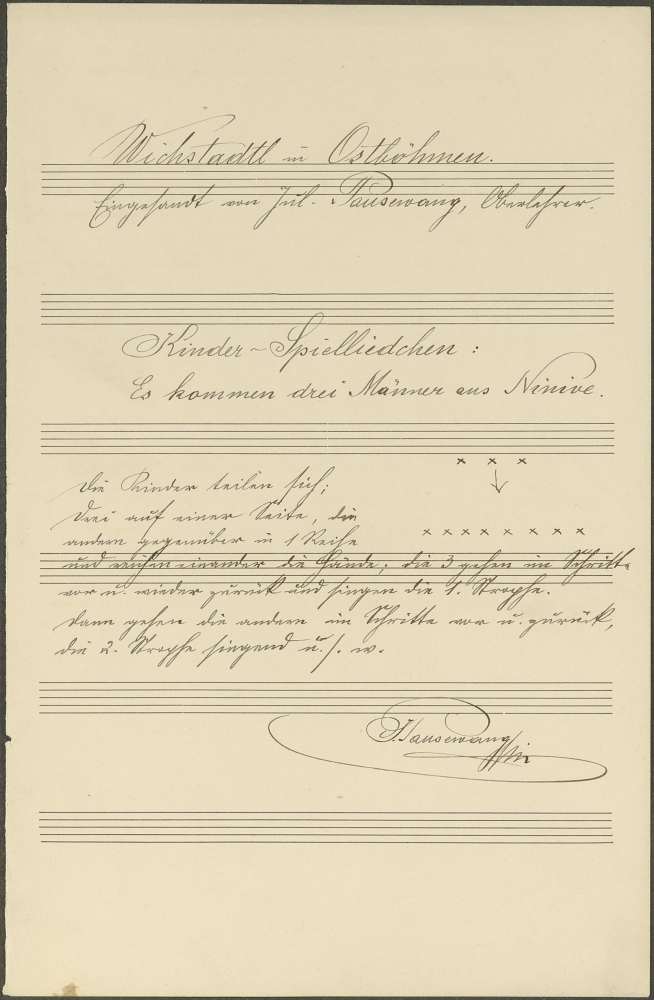 Wichstadtl in Ostböhmen.
Eingesandt von Jul. Pausewang, Oberlehrer.
Kinder-Spielliedchen:
Es kommen drei Männer aus Ninive.
x x x
Die Kinder teilen sich;
Drei auf einer Seite, die
andern gegenüber in 1 Reihe
x x x x x x x x x
und reichen einander die Hände; die 3 gehen im Schritte
vor u. wieder zurück und singen die 1. Strophe.
Dann gehen die andern im Schritte vor u. zurück,
die 2. Strophe singend u. s. w.
Pausewang